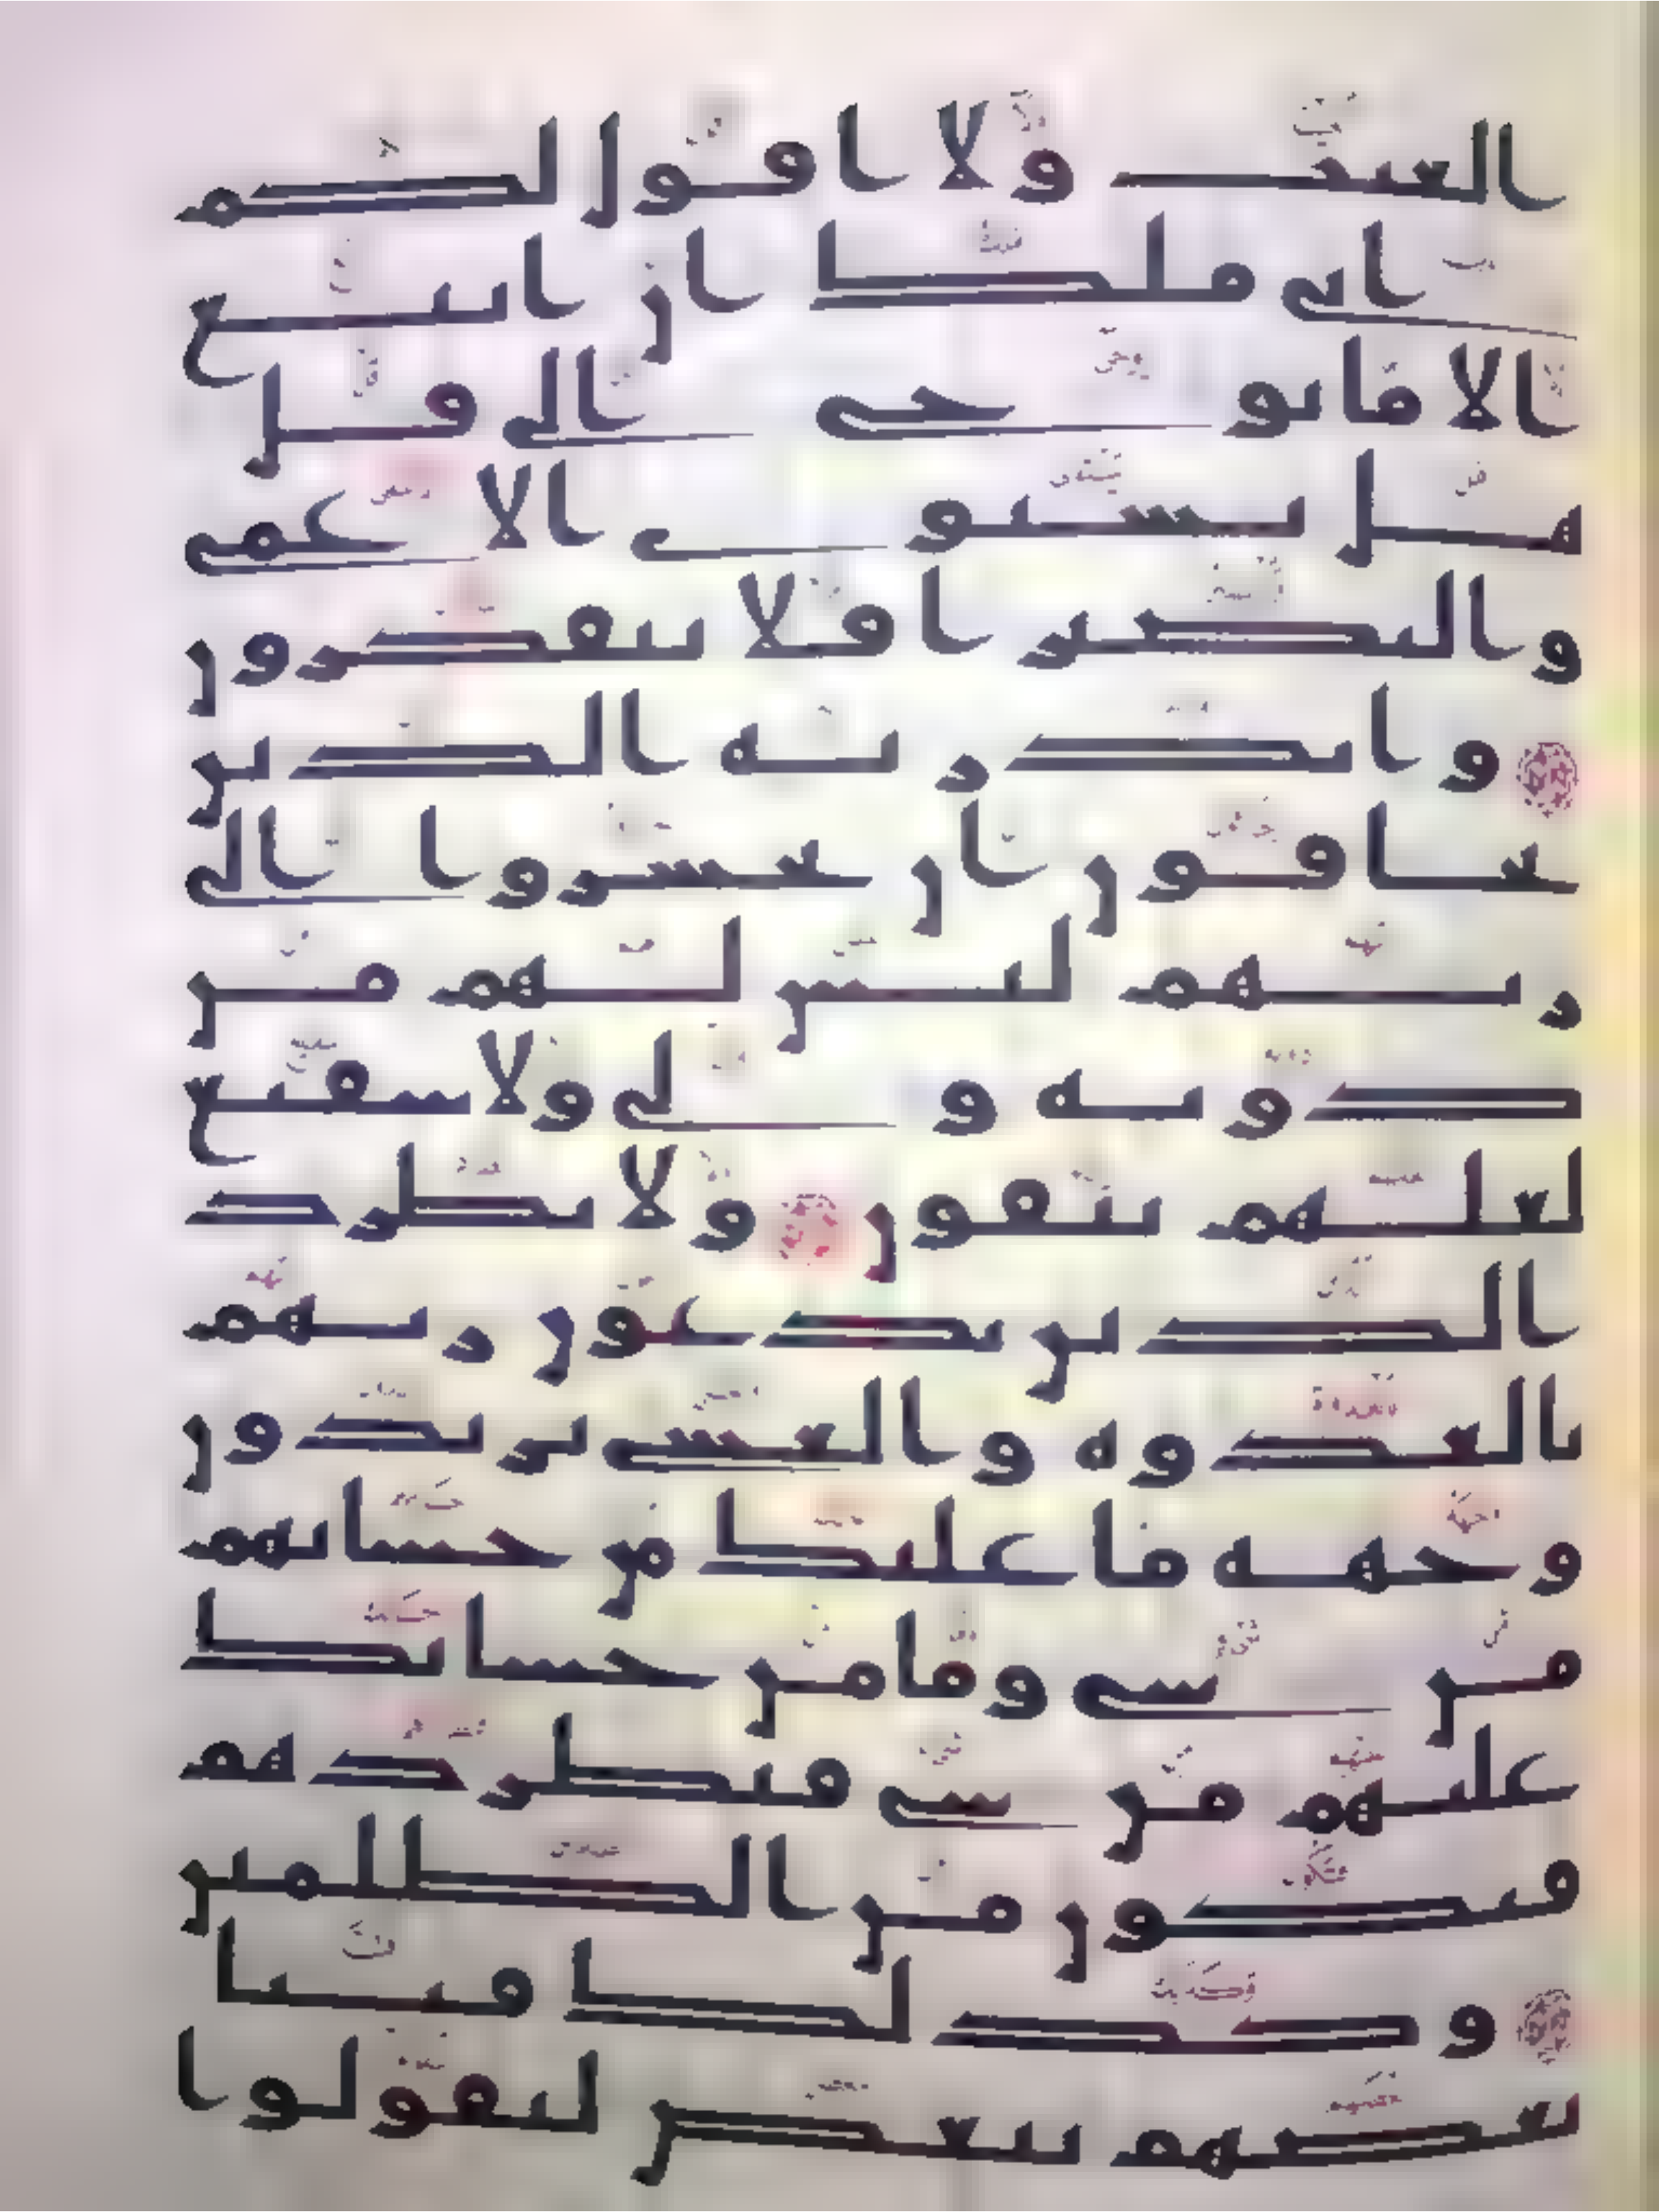 الغيب ولا اقول لكم
اني ملك ان اتبع
الا ما يوحى الي قل
هل يستوي الاعمى
والبصير افلا تتفكرون
وانذر به الذين
يخافون ان يحشروا الى
ربهم ليس لهم من
دونه ولي ولا شفيع
لعلهم يتقون ولا تطرد
الذين يدعون ربهم
بالغدوه والعشي يريدون
وجهه ما عليك من حسابهم
من شي وما من حسابك
عليهم من شي فتطردهم
فتكون من الظلمين
وكذلك فتنا
بعضهم ببعض ليقولوا